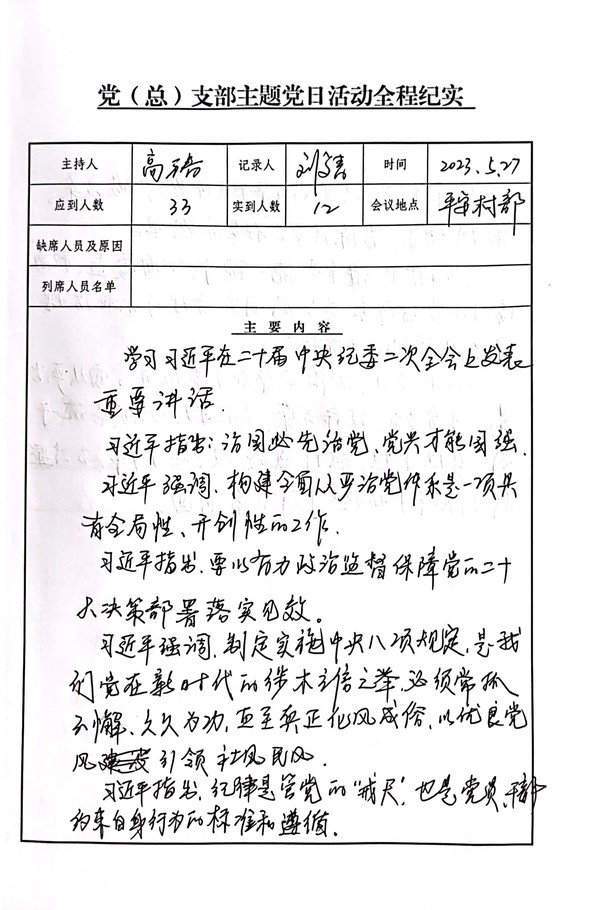 党（总）支部主题党日活动全程纪实
主持人 高 记录人 刘 时间 2023.5.27
应到人数 33 实到人数 12 会议地点 平安村部
缺席人员及原因
列席人员名单
主要内容
学习习近平在二十届中央纪委二次全会上发表
重要讲话.
习近平指出：治国必先治党、党兴才能国强.
习近平强调.构建全面从严治党体系是一项具
有全局性、开创性的工作.
习近平指出.要以有力政治监督保障党的二十
大决策部署落实见效。
习近平强调.制定实施中央八项规定.是我
们党在新时代的徙木立信之举.必须常抓
不懈、久久为功、直至真正化风成俗，以优良党
风引领社风民风.
习近平指出.纪律是管党的“戒尺”.也是党员、干部
约束自身行为的标准和遵循.